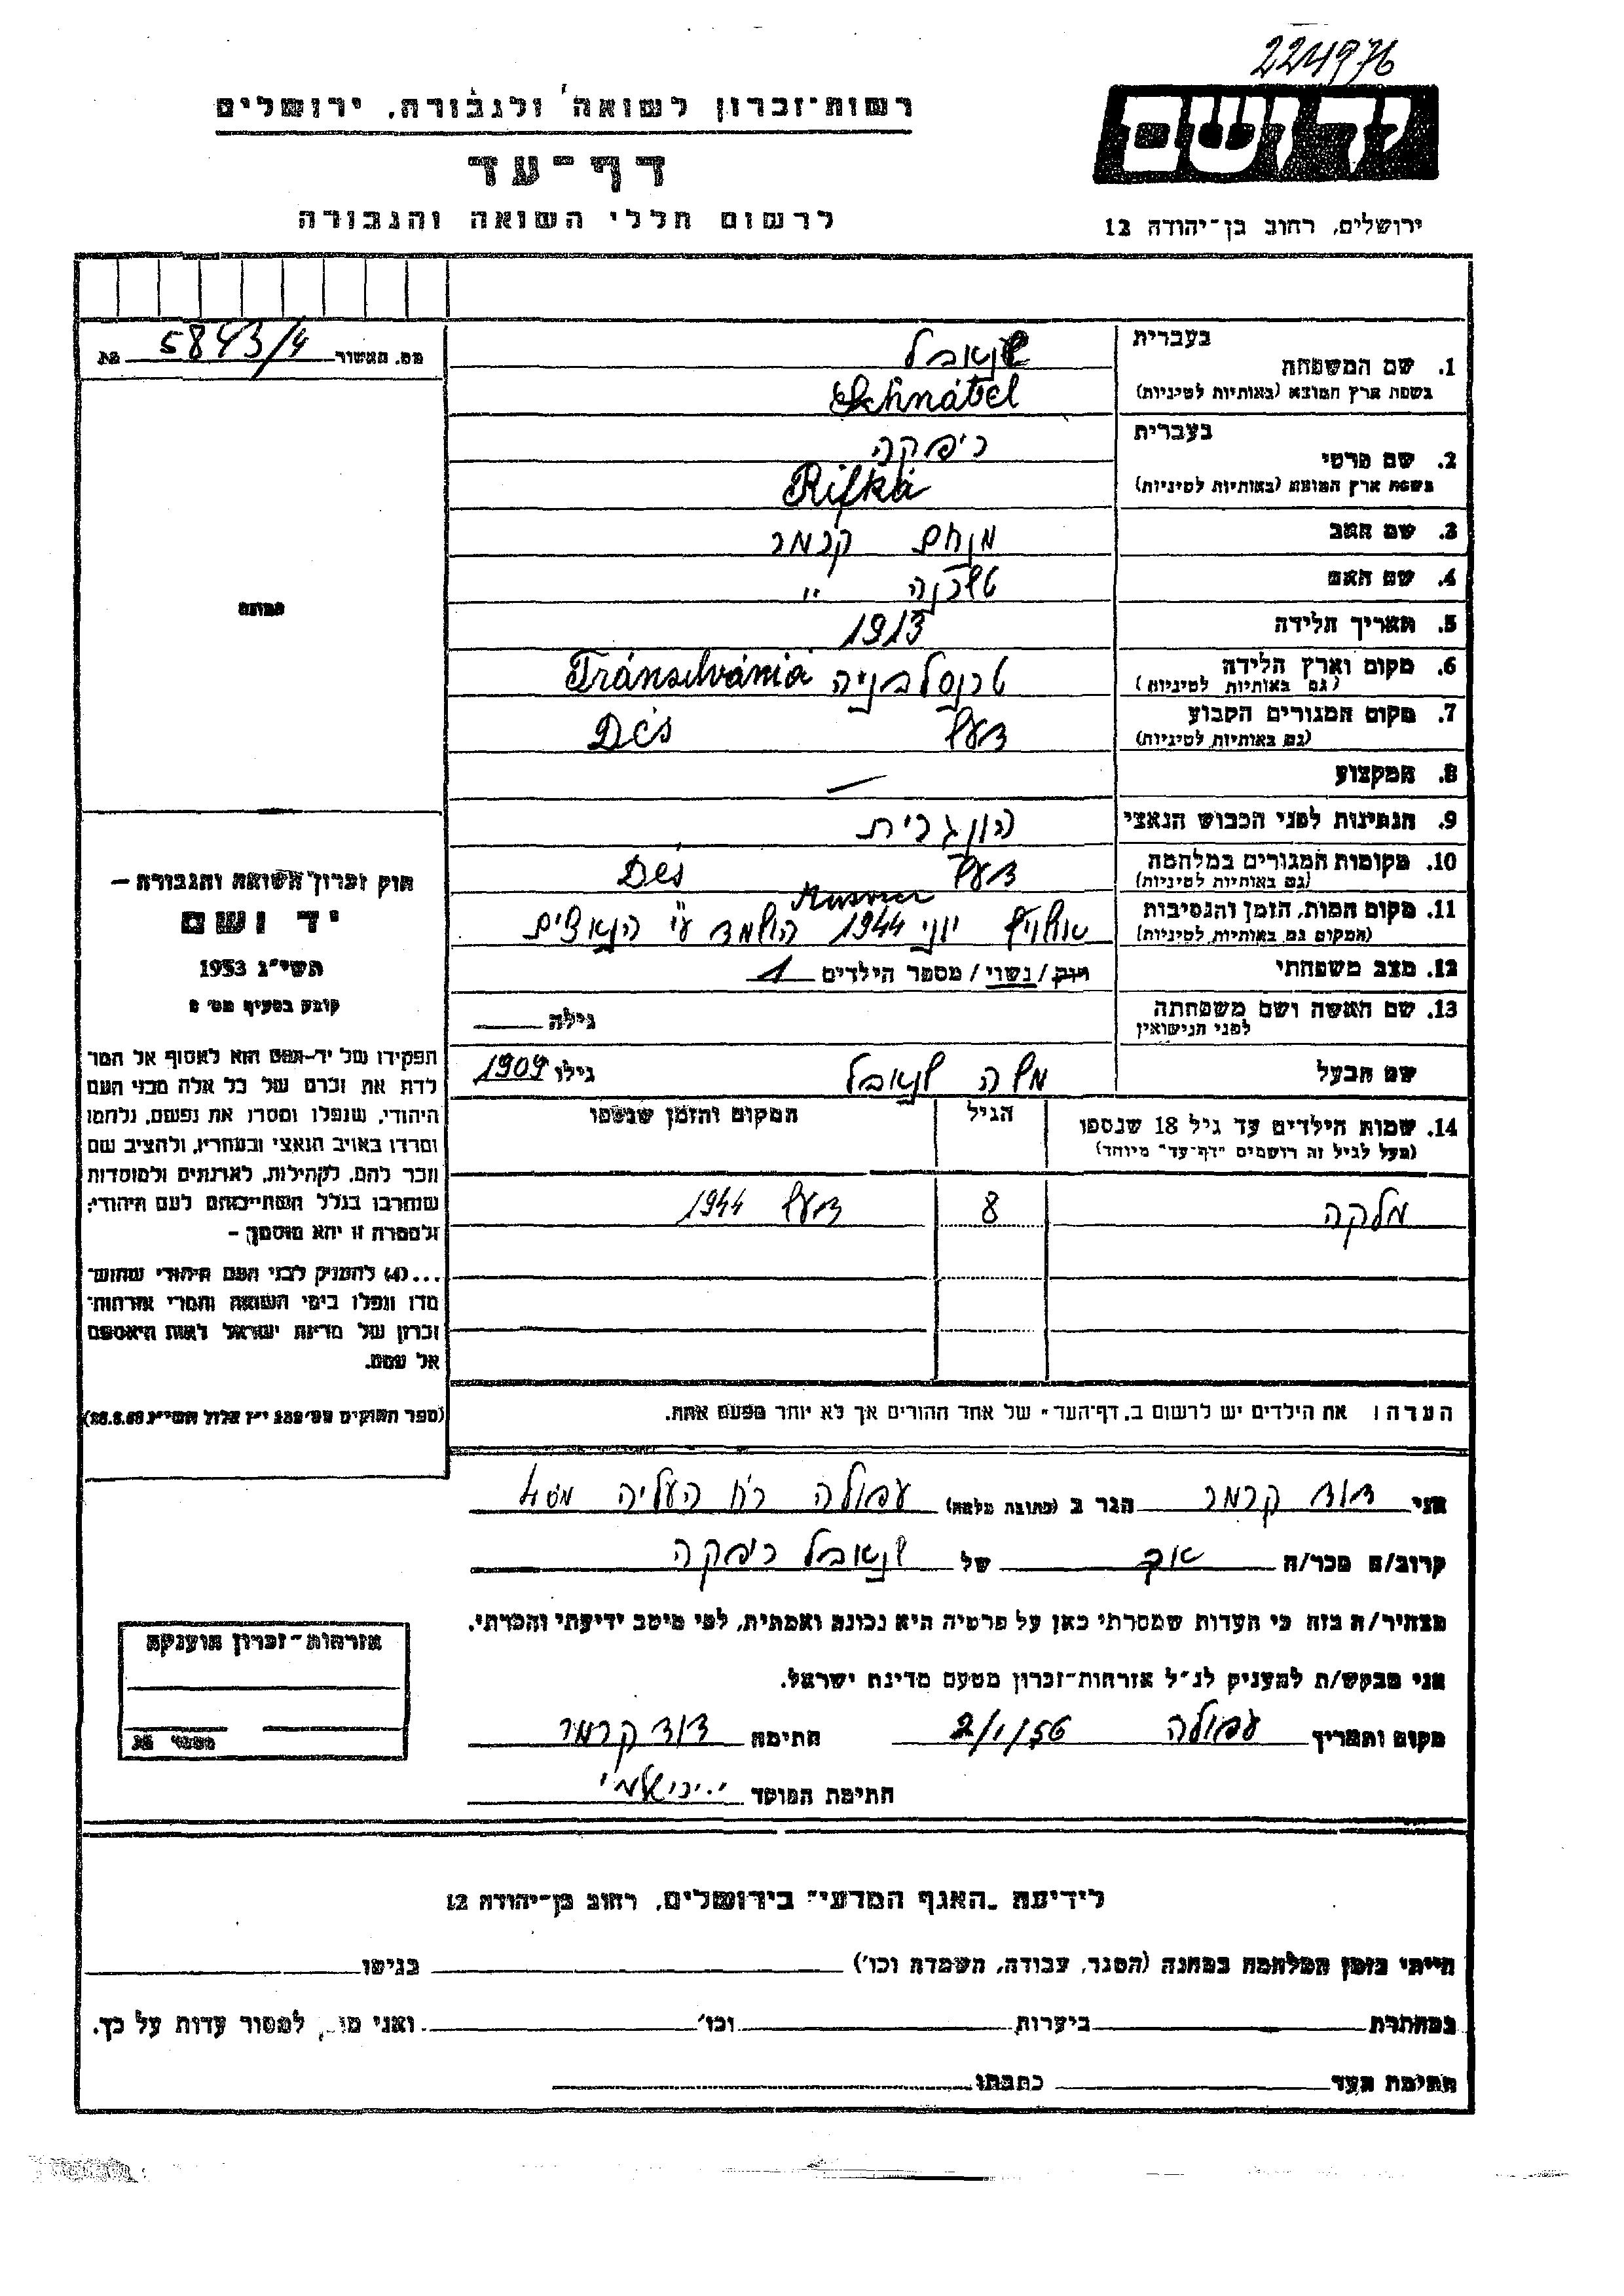 224976
רשות־זכרון לשואה ולגבורה, ירושלים
יד ושם
דף־עד
לרשום חללי השואה והגבורה
ירושלים, רחוב בן־יהודה 12
מס. האשור 5843/4
בעברית
1. שם המשפחה שנאבל
בשפת ארץ המוצא (באותיות לטיניות) Schnábel
בעברית
2. שם פרטי ריפקה
בשפת ארץ המוצא (באותיות לטיניות) Rifká
3. שם האב מנחם קרמר
4. שם האם "
5. תאריך הלידה 1913
6. מקום וארץ הלידה טרנסלבניה Tránsilvániá
(גם באותיות לטיניות)
7. מקום המגורים הקבוע דעש Dés
(גם באותיות לטיניות)
8. המקצוע —
9. הנתינות לפני הכבוש הנאצי הונגרית
10. מקומות המגורים במלחמה דעש Dés
(גם באותיות לטיניות)
11. מקום המות, הזמן והנסיבות יוני 1944 הושמד ע"י הנאצים
(המקום גם באותיות לטיניות)
12. מצב משפחתי רווק / נשוי / מספר הילדים 1
13. שם האשה ושם משפחתה גילה
לפני הנישואין
שם הבעל משה שנאבל גילו 1909
14. שמות הילדים עד גיל 18 שנספו הגיל המקום והזמן שנספו
(מעל לגיל זה רושמים "דף־עד" מיוחד)
מלקה 8 דעש 1944
הערה: את הילדים יש לרשום ב"דף־העד" של אחד ההורים אך לא יותר מפעם אחת.
תמונה
חוק זכרון השואה והגבורה —
יד ושם
תשי"ג 1953
קובע בסעיף מס' 2
תפקידו של יד־ושם הוא לאסוף אל המו־
לדת את זכרם של כל אלה מבני העם
היהודי, שנפלו ומסרו את נפשם, נלחמו
ומרדו באויב הנאצי ובעוזריו, ולהציב שם
וזכר להם, לקהילות, לארגונים ולמוסדות
שנחרבו בגלל השתייכותם לעם היהודי;
ולמטרה זו יהא מוסמך —
...(4) להעניק לבני העם היהודי שהוש־
מדו ונפלו בימי השואה והמרי אזרחות־
זכרון של מדינת ישראל לאות היאספם
אל עמם.
אני דוד קרמר הגר ב (כתובת מלאה) עפולה רח העליה
קרוב/ה מכר/ה אח של שנאבל ריפקה
מצהיר/ה בזה כי העדות שמסרתי כאן על פרטיה היא נכונה ואמתית, לפי מיטב ידיעתי והכרתי.
אני מבקש/ת להעניק לנ"ל אזרחות־זכרון מטעם מדינת ישראל.
מקום ותאריך עפולה 2/1/56 חתימה דוד קרמר
חתימת הפוקד
אזרחות־זכרון הוענקה
לידיעת "האגף המדעי" בירושלים, רחוב בן־יהודה 12
הייתי בזמן המלחמה במחנה (הסגר, עבודה, השמדה וכו') בגיטו
במחתרת ביערות וכו' ואני למסור עדות על כך.
חתימת העד כתבתו